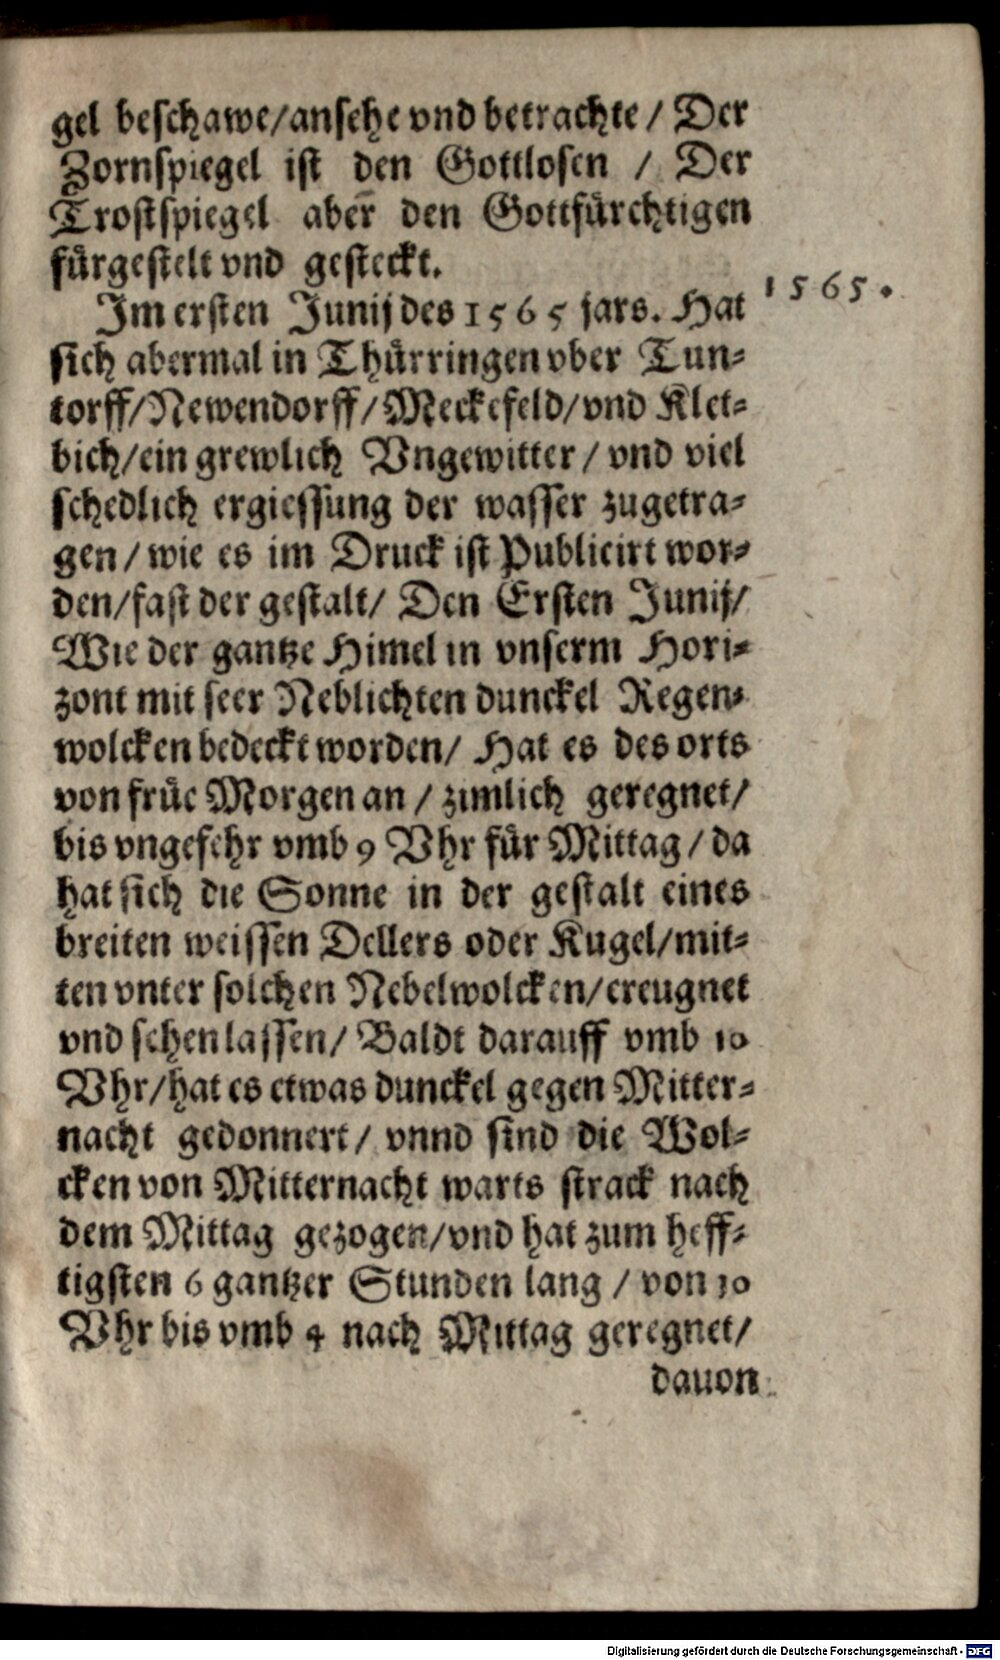 gel beschawe/ansehe vnd betrachte / Der
Zornspiegel ist den Gottlosen / Der
Trostspiegel aber den Gottfürchtigen
fürgestelt vnd gesteckt.
Im ersten Junij des 1565 jars. Hat
1565.
sich abermal in Thürringen vber Tun-
torff/Newendorff/Meckefeld/vnd Klet-
bich/ein grewlich Vngewitter / vnd viel
schedlich ergiessung der wasser zugetra-
gen / wie es im Druck ist Publicirt wor-
den/fast der gestalt/ Den Ersten Junij/
Wie der gantze Himel in vnserm Hori-
zont mit seer Neblichten dunckel Regen-
wolcken bedeckt worden/ Hat es des orts
von früe Morgen an / zimlich geregnet/
bis vngefehr vmb 9 Vhr für Mittag / da
hat sich die Sonne in der gestalt eines
breiten weissen Dellers oder Kugel/mit-
ten vnter solchen Nebelwolcken/ereugnet
vnd sehen lassen/ Baldt darauff vmb 10
Vhr/hat es etwas dunckel gegen Mitter-
nacht gedonnert / vnnd sind die Wol-
cken von Mitternacht warts strack nach
dem Mittag gezogen/vnd hat zum heff-
tigsten 6 gantzer Stunden lang / von 10
Vhr bis vmb 4 nach Mittag geregnet/
dauon
Digitalisierung gefördert durch die Deutsche Forschungsgemeinschaft - DFG